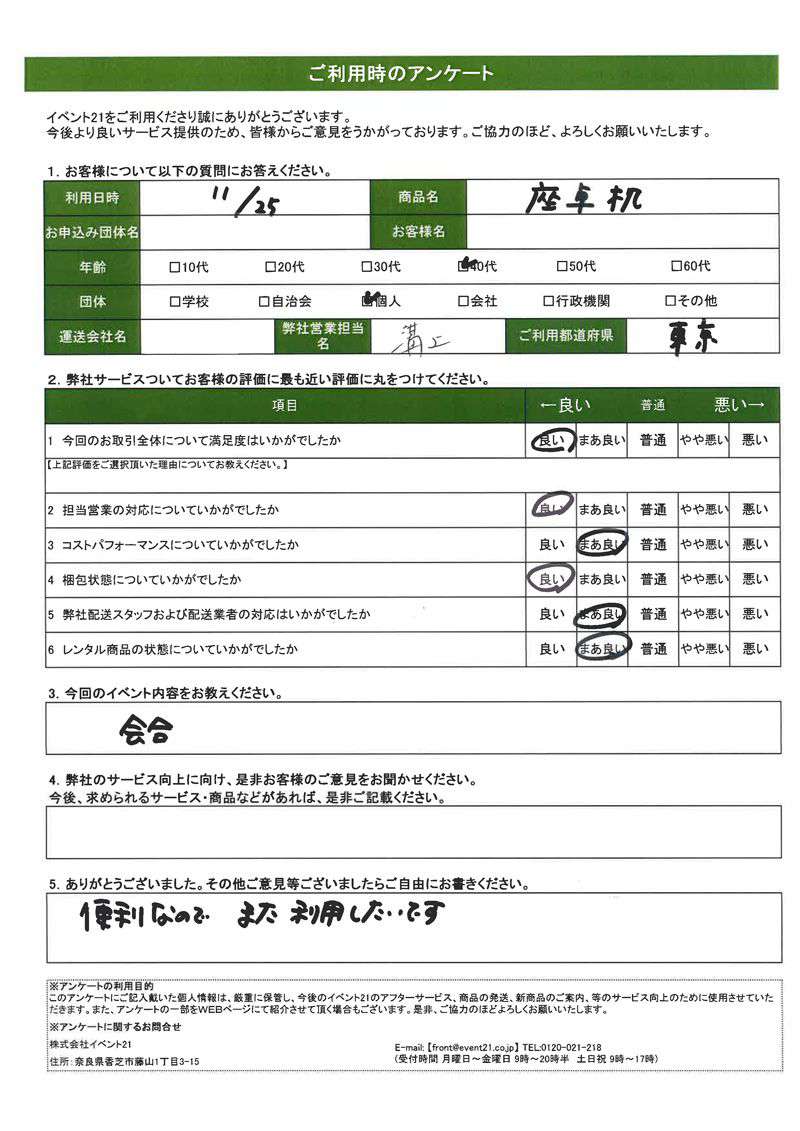 ご利用時のアンケート
イベント21をご利用くださり誠にありがとうございます。
今後より良いサービス提供のため、皆様からご意見をうかがっております。ご協力のほど、よろしくお願いいたします。
1. お客様について以下の質問にお答えください。
利用日時 11/25 商品名 座卓机
お申込み団体名 お客様名
年齢 □10代 □20代 □30代 ☑40代 □50代 □60代
団体 □学校 □自治会 ☑個人 □会社 □行政機関 □その他
運送会社名 弊社営業担当名 溝上 ご利用都道府県 東京
2. 弊社サービスついてお客様の評価に最も近い評価に丸をつけてください。
項目 ←良い 普通 悪い→
1 今回のお取引全体について満足度はいかがでしたか 良い まあ良い 普通 やや悪い 悪い
【上記評価をご選択頂いた理由についてお教えください。】
2 担当営業の対応についていかがでしたか 良い まあ良い 普通 やや悪い 悪い
3 コストパフォーマンスについていかがでしたか 良い まあ良い 普通 やや悪い 悪い
4 梱包状態についていかがでしたか 良い まあ良い 普通 やや悪い 悪い
5 弊社配送スタッフおよび配送業者の対応はいかがでしたか 良い まあ良い 普通 やや悪い 悪い
6 レンタル商品の状態についていかがでしたか 良い まあ良い 普通 やや悪い 悪い
3. 今回のイベント内容をお教えください。
会合
4. 弊社のサービス向上に向け、是非お客様のご意見をお聞かせください。
今後、求められるサービス・商品などがあれば、是非ご記載ください。
5. ありがとうございました。その他ご意見等ございましたらご自由にお書きください。
便利なので また 利用したいです
※アンケートの利用目的
このアンケートにご記入戴いた個人情報は、厳重に保管し、今後のイベント21のアフターサービス、商品の発送、新商品のご案内、等のサービス向上のために使用させていた
だきます。また、アンケートの一部をWEBページにて紹介させて頂く場合もございます。是非、ご協力のほどよろしくお願いいたします。
※アンケートに関するお問合せ
株式会社イベント21 E-mail:【front@event21.co.jp】 TEL:0120-021-218
住所:奈良県香芝市藤山1丁目3-15 (受付時間 月曜日～金曜日 9時～20時半 土日祝 9時～17時)